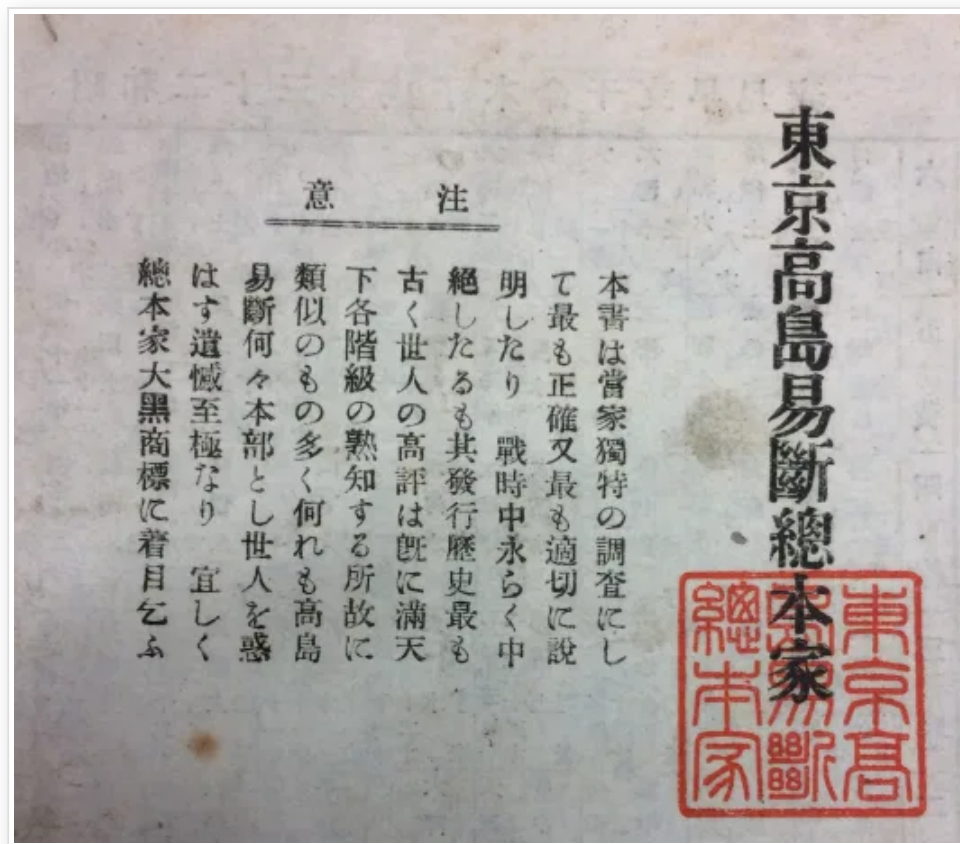 東京高島易斷總本家
注意
本書は當家獨特の調査にし
て最も正確又最も適切に說
明したり　戰時中永らく中
絕したるも其發行歷史最も
古く世人の高評は旣に滿天
下各階級の熟知する所故に
類似のもの多く何れも高島
易斷何々本部とし世人を惑
はす遺憾至極なり　宜しく
總本家大黑商標に着目乞ふ
東京髙
島易斷
總本家